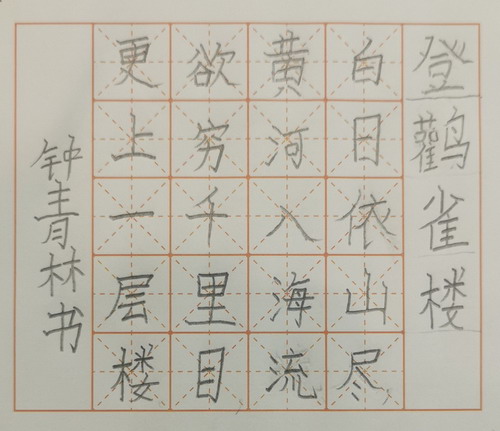 登鹳雀楼
白日依山尽
黄河入海流
欲穷千里目
更上一层楼
钟青林书